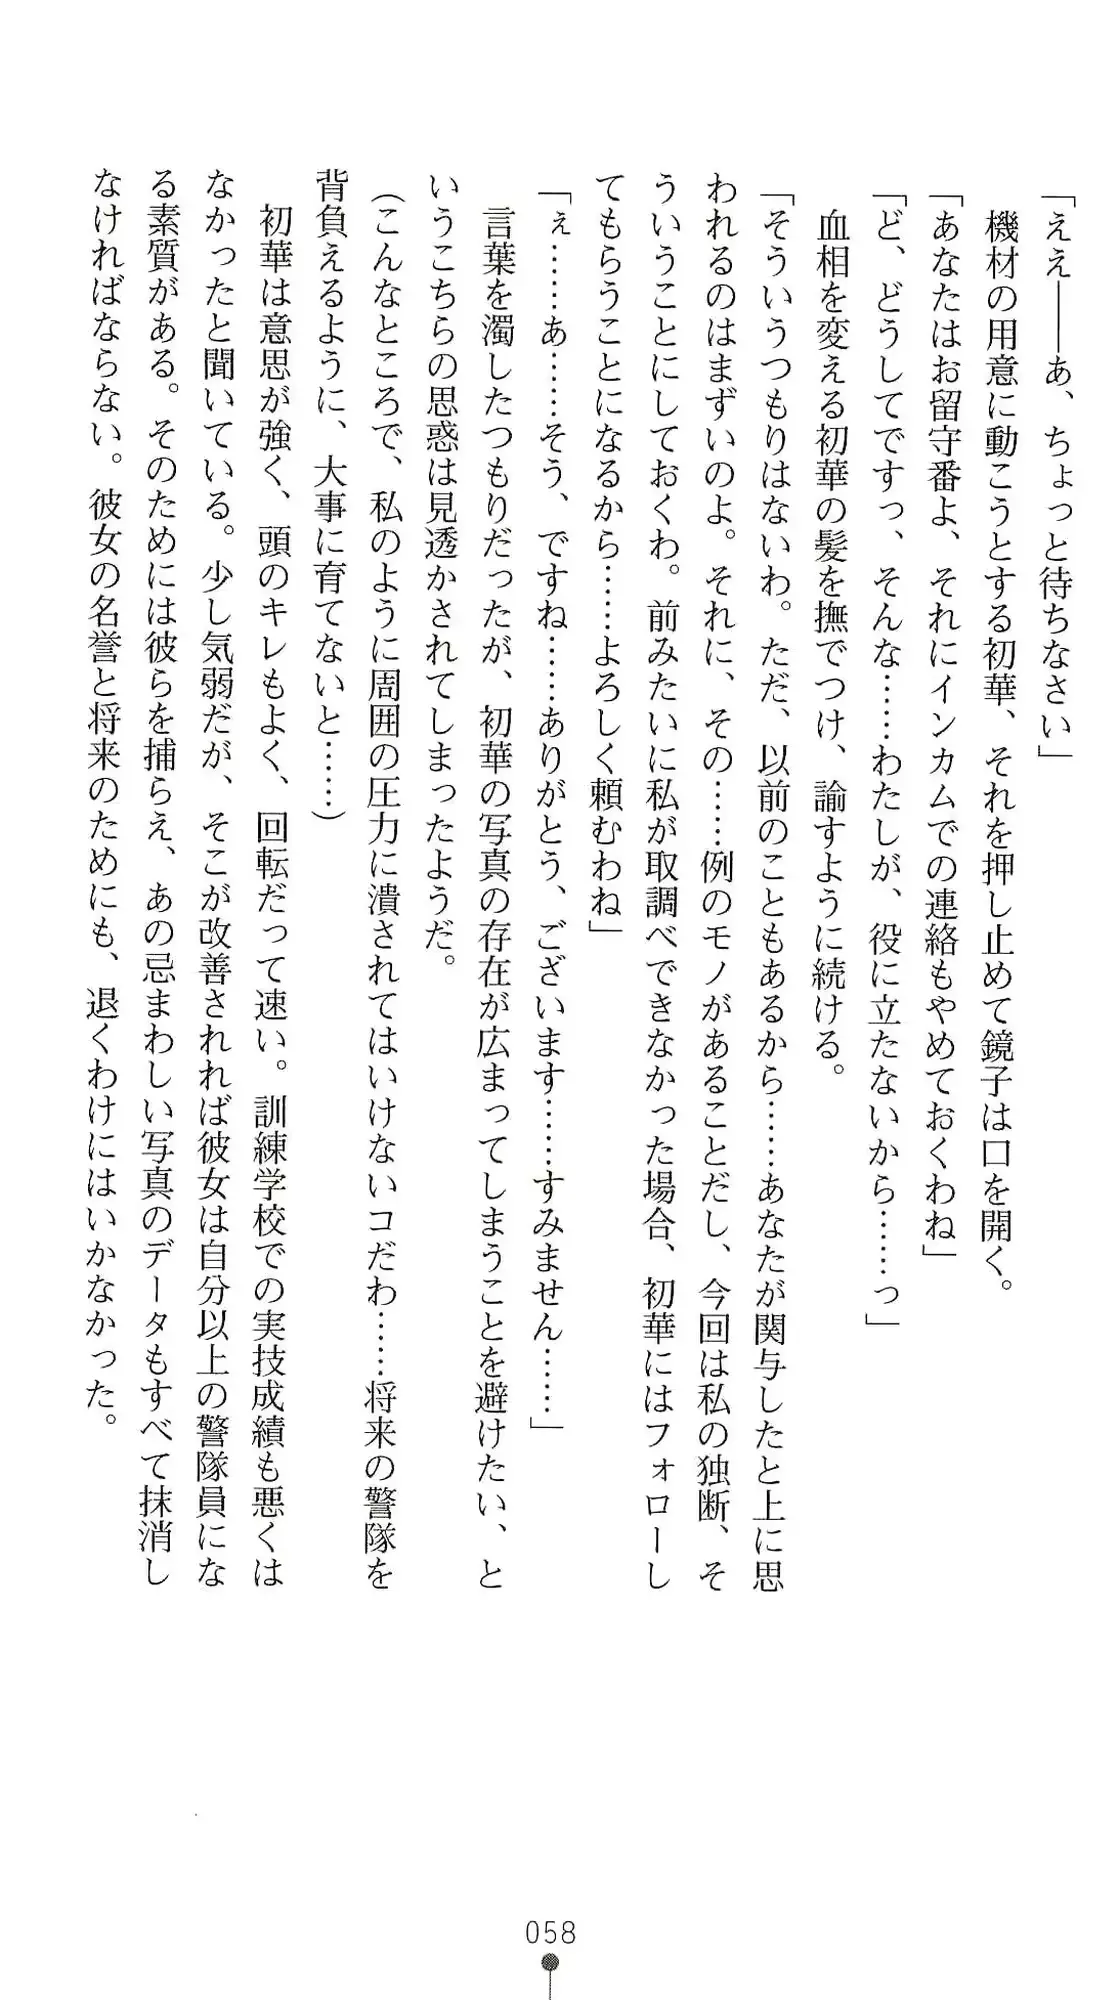 「ええ――あ、ちょっと待ちなさい」
　機材の用意に動こうとする初華、それを押し止めて鏡子は口を開く。
「あなたはお留守番よ、それにインカムでの連絡もやめておくわね」
「ど、どうしてですっ、そんな……わたしが、役に立たないから……っ」
　血相を変える初華の髪を撫でつけ、諭すように続ける。
「そういうつもりはないわ。ただ、以前のこともあるから……あなたが関与したと上に思
われるのはまずいのよ。それに、その……例のモノがあることだし、今回は私の独断、そ
ういうことにしておくわ。前みたいに私が取調べできなかった場合、初華にはフォローし
てもらうことになるから……よろしく頼むわね」
「ぇ……あ……そう、ですね……ありがとう、ございます……すみません……」
　言葉を濁したつもりだったが、初華の写真の存在が広まってしまうことを避けたい、と
いうこちらの思惑は見透かされてしまったようだ。
（こんなところで、私のように周囲の圧力に潰されてはいけないコだわ……将来の警隊を
背負えるように、大事に育てないと……）
　初華は意思が強く、頭のキレもよく、回転だって速い。訓練学校での実技成績も悪くは
なかったと聞いている。少し気弱だが、そこが改善されれば彼女は自分以上の警隊員にな
る素質がある。そのためには彼らを捕らえ、あの忌まわしい写真のデータもすべて抹消し
なければならない。彼女の名誉と将来のためにも、退くわけにはいかなかった。
058